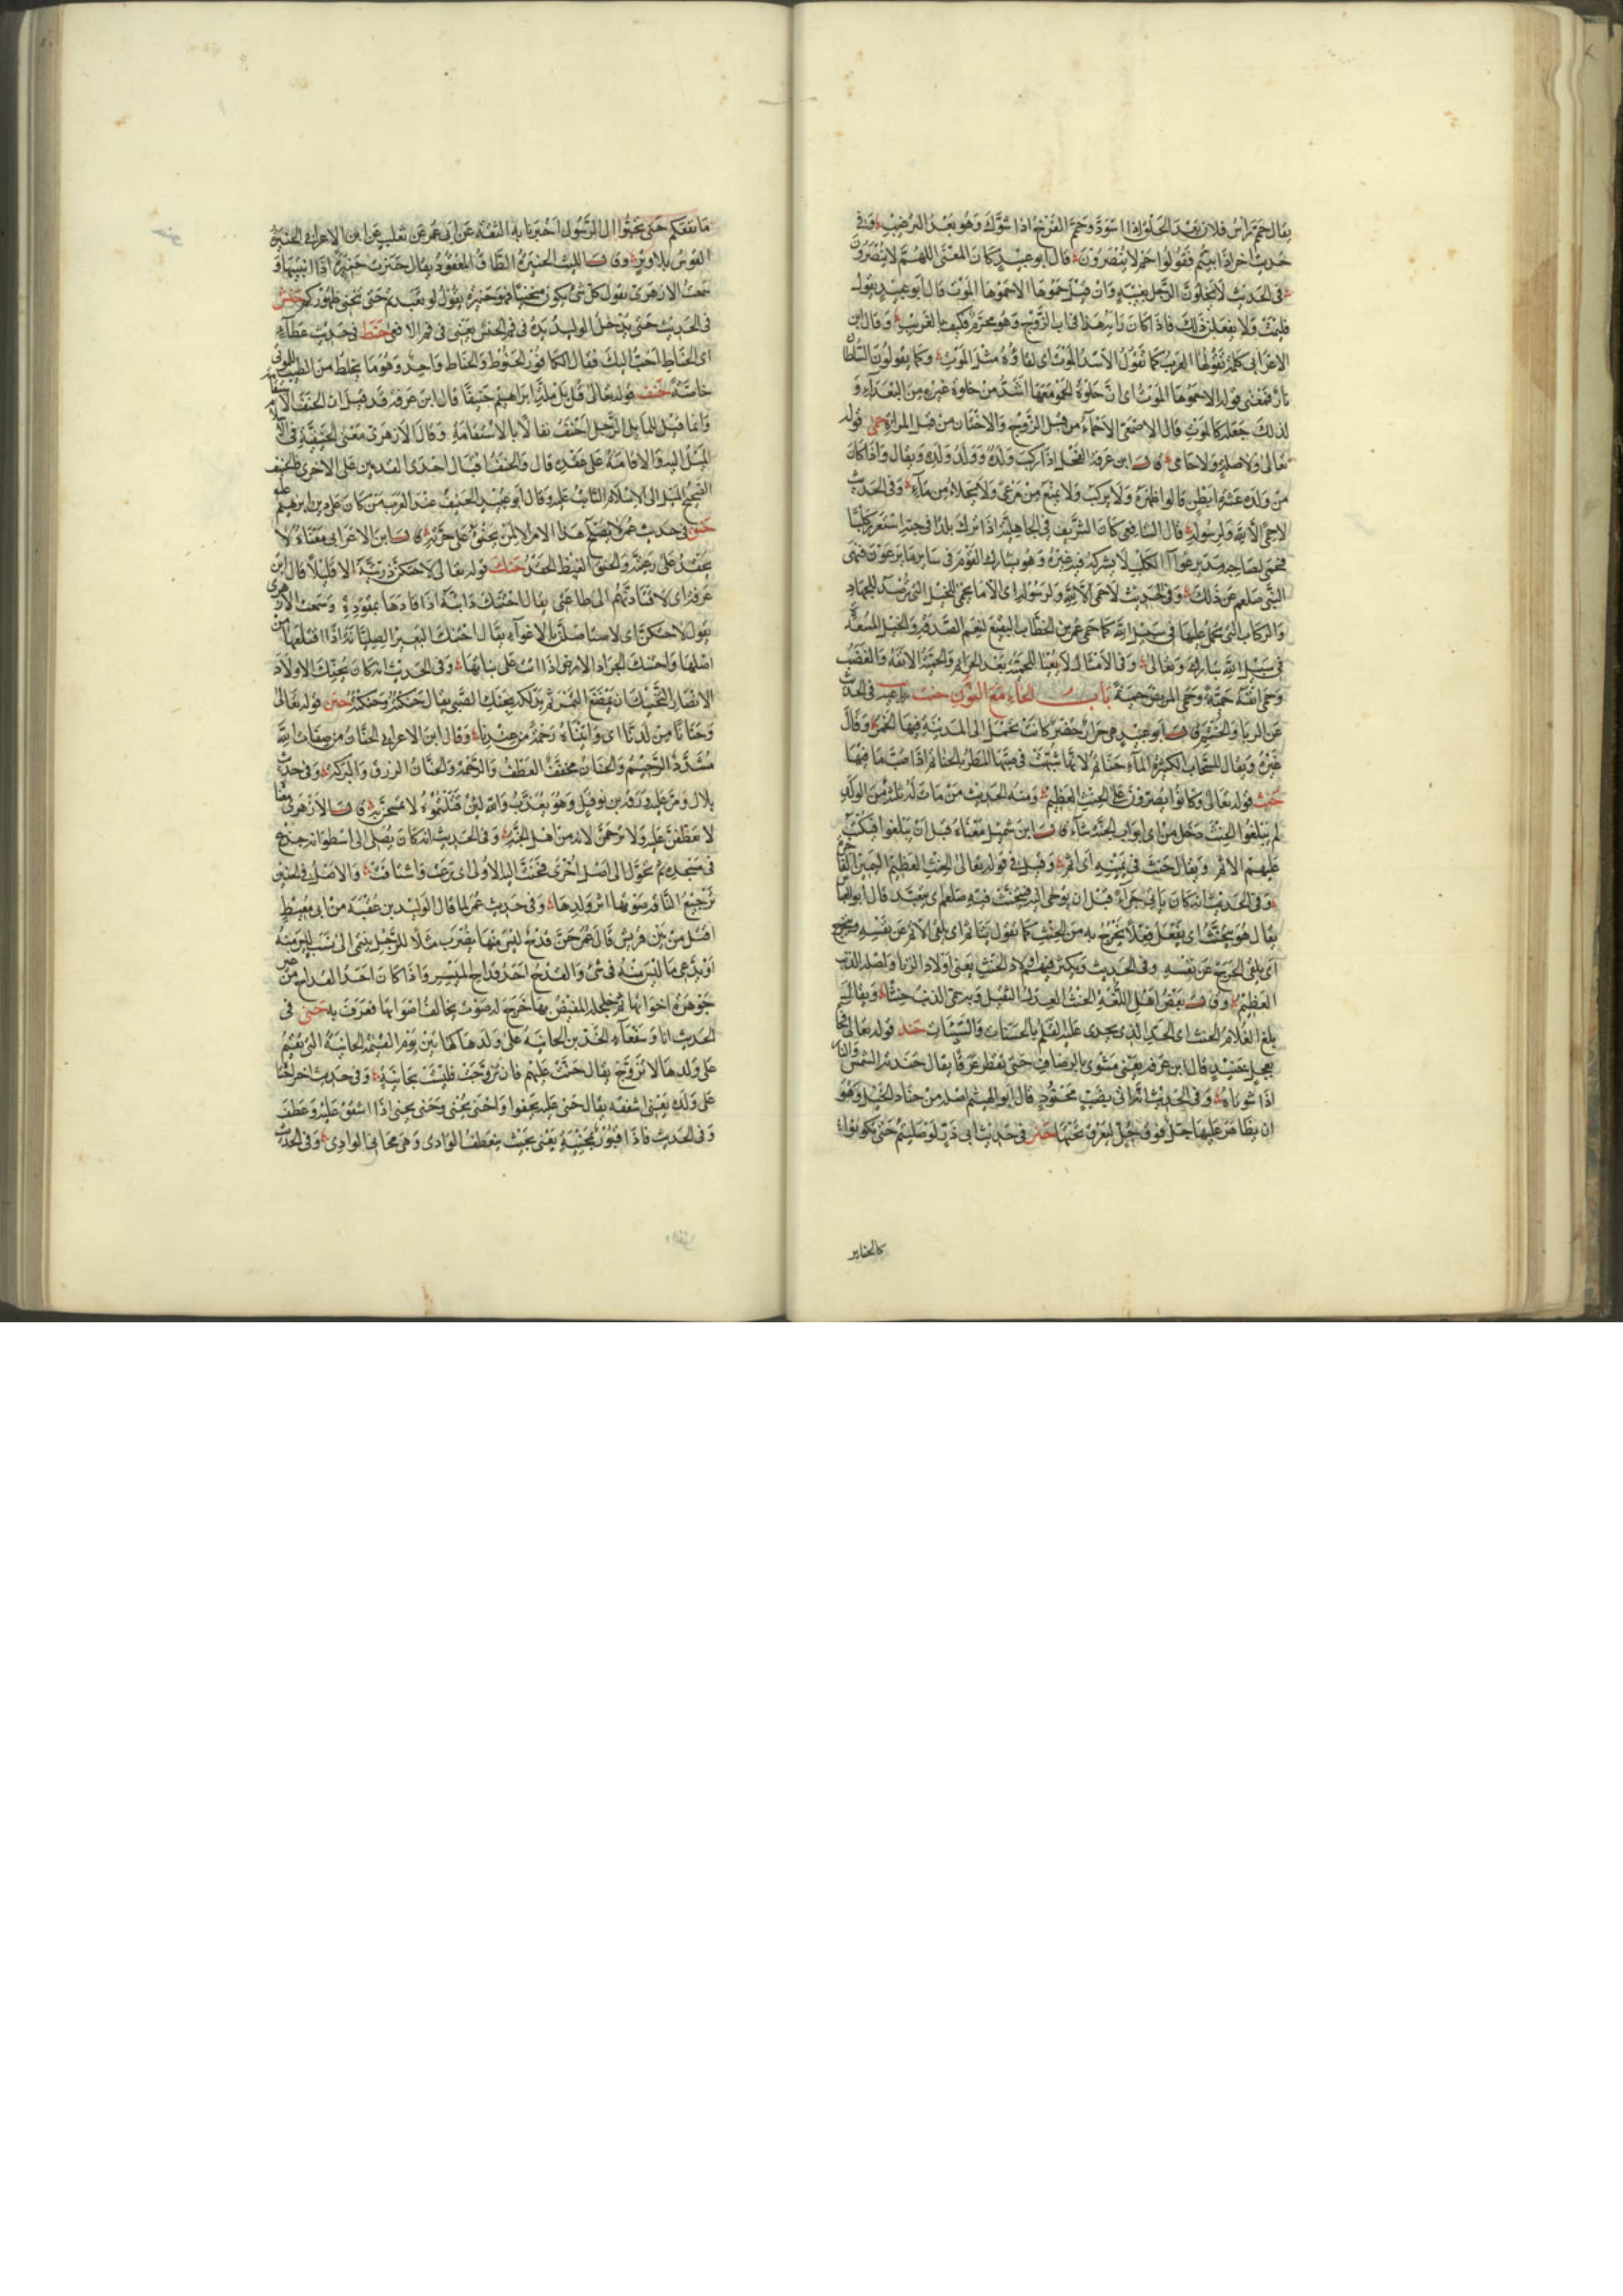 يقال حمم رأس فلان بعد الحلق اذا اسود وحمم الفرخ اذا شوك وهو بعد الزغيب وفي
حديث اخر اذا بيتم فقولوا حم لا ينصرون قال ابو عبيد كان المعنى اللهم لا ينصرون
في الحديث لا يخلون الرجل بمغيبة وان قيل حموها الا حموها الموت قال ابو عبيد يقول
فليمت ولا يفعلن ذلك فاذا كان رايه هذا في اب الزوج وهو محرم فكيف بالغريب وقال ابن
الاعرابي كلمة تقولها العرب كما تقول الاسد الموت اى لقاؤه مثل الموت وكما يقولون السلطان
نار فمعنى قوله الا حموها الموت اى ان خلوة الحمو معها اشد من خلوة غيره من البعداء و
لذلك جعله كالموت قال الاصمعى الاحماء من قبل الزوج والاختان من قبل المراة حمى قوله
تعالى ولا وصيلة ولا حامى قال ابن عرفة الفحل اذا ركب ولده وولد ولده ويقال واذا كان
من ولده عشرة ابطن قالوا حمى ظهره ولا يركب ولا يمنع من مرعى ولا من ماء وفى الحديث
لا حمى الا لله ولرسوله قال الشافعى كان الشريف فى الجاهلية اذا نزل بلدا فى حيه استعوى كلبا
فحمى لصاحبه مدى عواء الكلب لا يشركه فيه غيره وهو يشارك القوم فى ساير ما يرعون فنهى
النبى صلعم عن ذلك وفى الحديث لا حمى الا لله ولرسوله اى الا ما يحمى للخيل التى ترصد للجهاد
والركاب التى يحمل عليها فى سبيل الله كما حمى عمر بن الخطاب البقيع لنعم الصدقة والخيل المعدة
فى سبيل الله تبارك وتعالى وفى الامثال لا بقيا للحمية بعد الحرايم والحمية الانفة والغضب
وحمى انفه حمية وحمى المريض حمية باب الحاء مع النون حنت فى الحديث
عن الدبا والحنتم قال ابو عبيد هى جرار خضر كانت تحمل الى المدينة فيها الخمر وقال
غيره ويقال للسحاب الكثيرة الماء حناتم لانها شبهت فى صبها المطر بالحناتم اذا صبت ما فيها
حنث قوله تعالى وكانوا يصرون على الحنث العظيم ومنه الحديث من مات له ثلثة من الولد
لم يبلغوا الحنث دخل من اى ابواب الجنة شاء قال ابن شميل معناه قبل ان يبلغوا فيكتب
عليهم الاثم ويقال حنث فى يمينه اى اثم وقيل فى قوله تعالى الحنث العظيم اليمين الفاجرة
وفى الحديث انه كان ياتى حراء قبل ان يوحى اليه فيتحنث فيه صلعم اى يتعبد قال ابو العباس
يقال هو يتحنث اى يفعل فعلا يخرج به من الحنث كما تقول يتاثم اى يلقى الاثم عن نفسه ويتحرج
اى يلقى الحرج عن نفسه وفى الحديث ويكثر فيهم اولاد الحنث يعنى اولاد الزنا واصله الذنب
العظيم وقال بعض اهل اللغة الحنث العدل الثقيل وبه سمى الذنب حنثا ويقال
بلغ الغلام الحنث اى الحد الذى يجرى عليه القلم بالحسنات والسيئات حنذ قوله تعالى فجاء
بعجل حنيذ قال ابن عرفة يعنى مشوى بالرضاف حتى يقطر عرقا يقال حنذته الشمس والنار
اذا شوياه وفى الحديث انه اتى بضب محنوذ قال ابو الهيثم اصله من حناذ الخيل وهو
ان يظاهر عليها جل فوق جل لتعرق تحتها حنر فى حديث ابى ذر لو صليتم حتى تكونوا
كالحناير
ما نفعكم حتى تحبوا ال الرسول اخبرنا به الثقة عن ابى عمر عن ثعلب عن ابن الاعرابى الحنيرة
القوس بلا وتر وقال الليث الحنيرة الطاق المعقود يقال حنرت حنيرة اذا بنيتها و
سمعت الازهرى يقول كل شئ يكون منحنيا فهو حنيرة يقول لو تعبدتم حتى تنحنى ظهوركم حنش
فى الحديث حتى يدخل الوليد يده فى فم الحنش يعنى فى فم الافعى حنط فى حديث عطاء
اى الحناط احب اليك فقال الكافور الحنوط والحناط واحد وهو ما يخلط من الطيب للموتى
خاصة حنف قوله تعالى قل بل ملة ابراهيم حنيفا قال ابن عرفة قد قيل ان الحنف الاستقامة
وانما قيل للمايل الرجل احنف تفالا بالاستقامة وقال الازهرى معنى الحنيفية فى الاسلام
الميل اليه والاقامة على عقده قال والحنف اقبال احدى القدمين على الاخرى فالحنيف
الصحيح الميل الى الاسلام الثابت عليه وقال ابو عبيد الحنيف عند العرب من كان على دين ابرهيم
حنق فى حديث عمر لا يصلح هذا الامر الا لمن لا يحنق على جرته قال ابن الاعرابى معناه لا
يحقد على رعيته والحنق الغيظ الحقد حنك قوله تعالى لاحتنكن ذريته الا قليلا قال ابن
عرفة اى لاقتادنهم الى طاعتى يقال احتنك دابته اذا قادها بمقودة وسمعت الازهرى
يقول لاحتنكن اى لاستاصلن بالاغواء يقال احتنك البعير الصليانة اذا اقتلعها من
اصلها واحتنك الجراد الارض اذا اتت على نباتها وفى الحديث انه كان يحنك اولاد
الانصار التحنيك ان يمضغ التمر ثم يدلكه بحنك الصبى يقال حنكته وحنكته حنن قوله تعالى
وحنانا من لدنا اى واتيناه رحمة من عندنا وقال ابن الاعرابى الحنان من صفات الله
مشدد الرحيم والحنان مخفف العطف والرحمة والحنان الرزق والبركة وفى حديث
بلال ومر عليه ورقة بن نوفل وهو يعذب والله لئن قتلتموه لاتخذنه حنانا قال الازهرى معناه
لاتعطفن عليه ولاترحمن لانه من اهل الجنة وفى الحديث انه كان يصلى الى اسطوانة جذع
فى مسجده ثم تحول الى اصل اخرى فحنت اليه الاولى اى نزعت واشتاقت والاصل فى الحنين
ترجيع الناقة صوتها اثر ولدها وفى حديث عمر لما قال الوليد بن عقبة بن ابى معيط
اقتل من بين قريش قال عمر حن قدح ليس منها يضرب مثلا للرجل ينتمى الى نسب ليس منه
او يدعى ما ليس منه فى شئ والقدح احد قداح الميسر واذا كان احد القداح من غير
جوهر اخواتها ثم جلجلها المفيض بها خرج له صوت يخالف اصواتها فعرف به حنى فى
الحديث انا وسفعاء الخدين الحانية على ولدها كهاتين يوم القيمة الحانية التى تقيم
على ولدها لا تزوج يقال حنت عليهم فان تزوجت فليست بحانية وفى حديث اخر احناه
على ولده يعنى اشفقه يقال حنى عليه يحنو واحنى يحنى وحنى يحنى اذا اشفق عليه وعطف
وفى الحديث فاذا قبور بمحنية يعنى بحيث ينعطف الوادى وهى محانى الوادى وفى الحديث